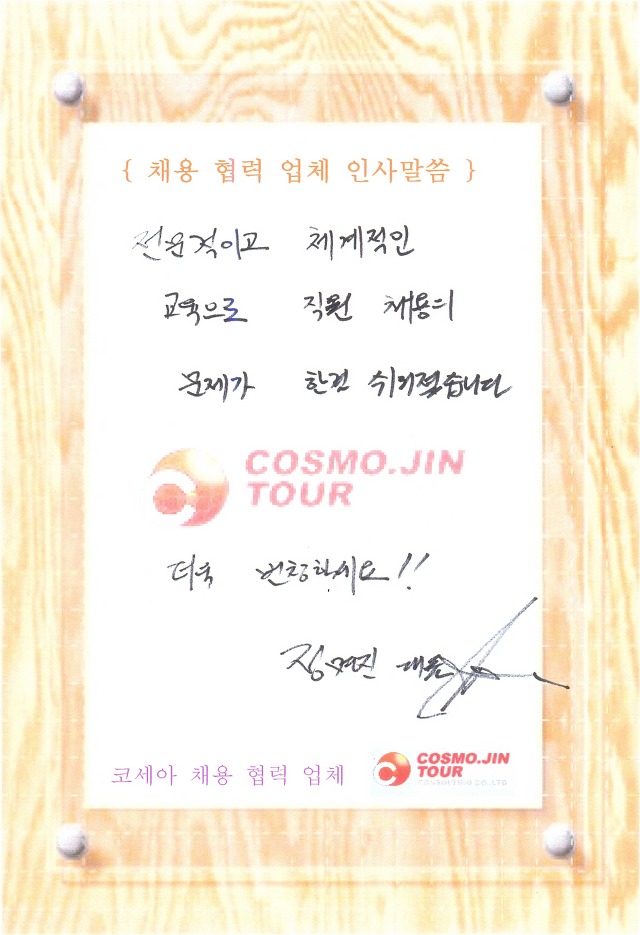 { 채용 협력 업체 인사말씀 }
전문적이고 체계적인
교육으로 직원 채용의
문제가 한결 쉬워졌습니다
COSMO.JIN
TOUR
더욱 번창하세요!!
정명진 대표
코세아 채용 협력 업체
COSMO.JIN
TOUR
CONSULTING CO.,LTD